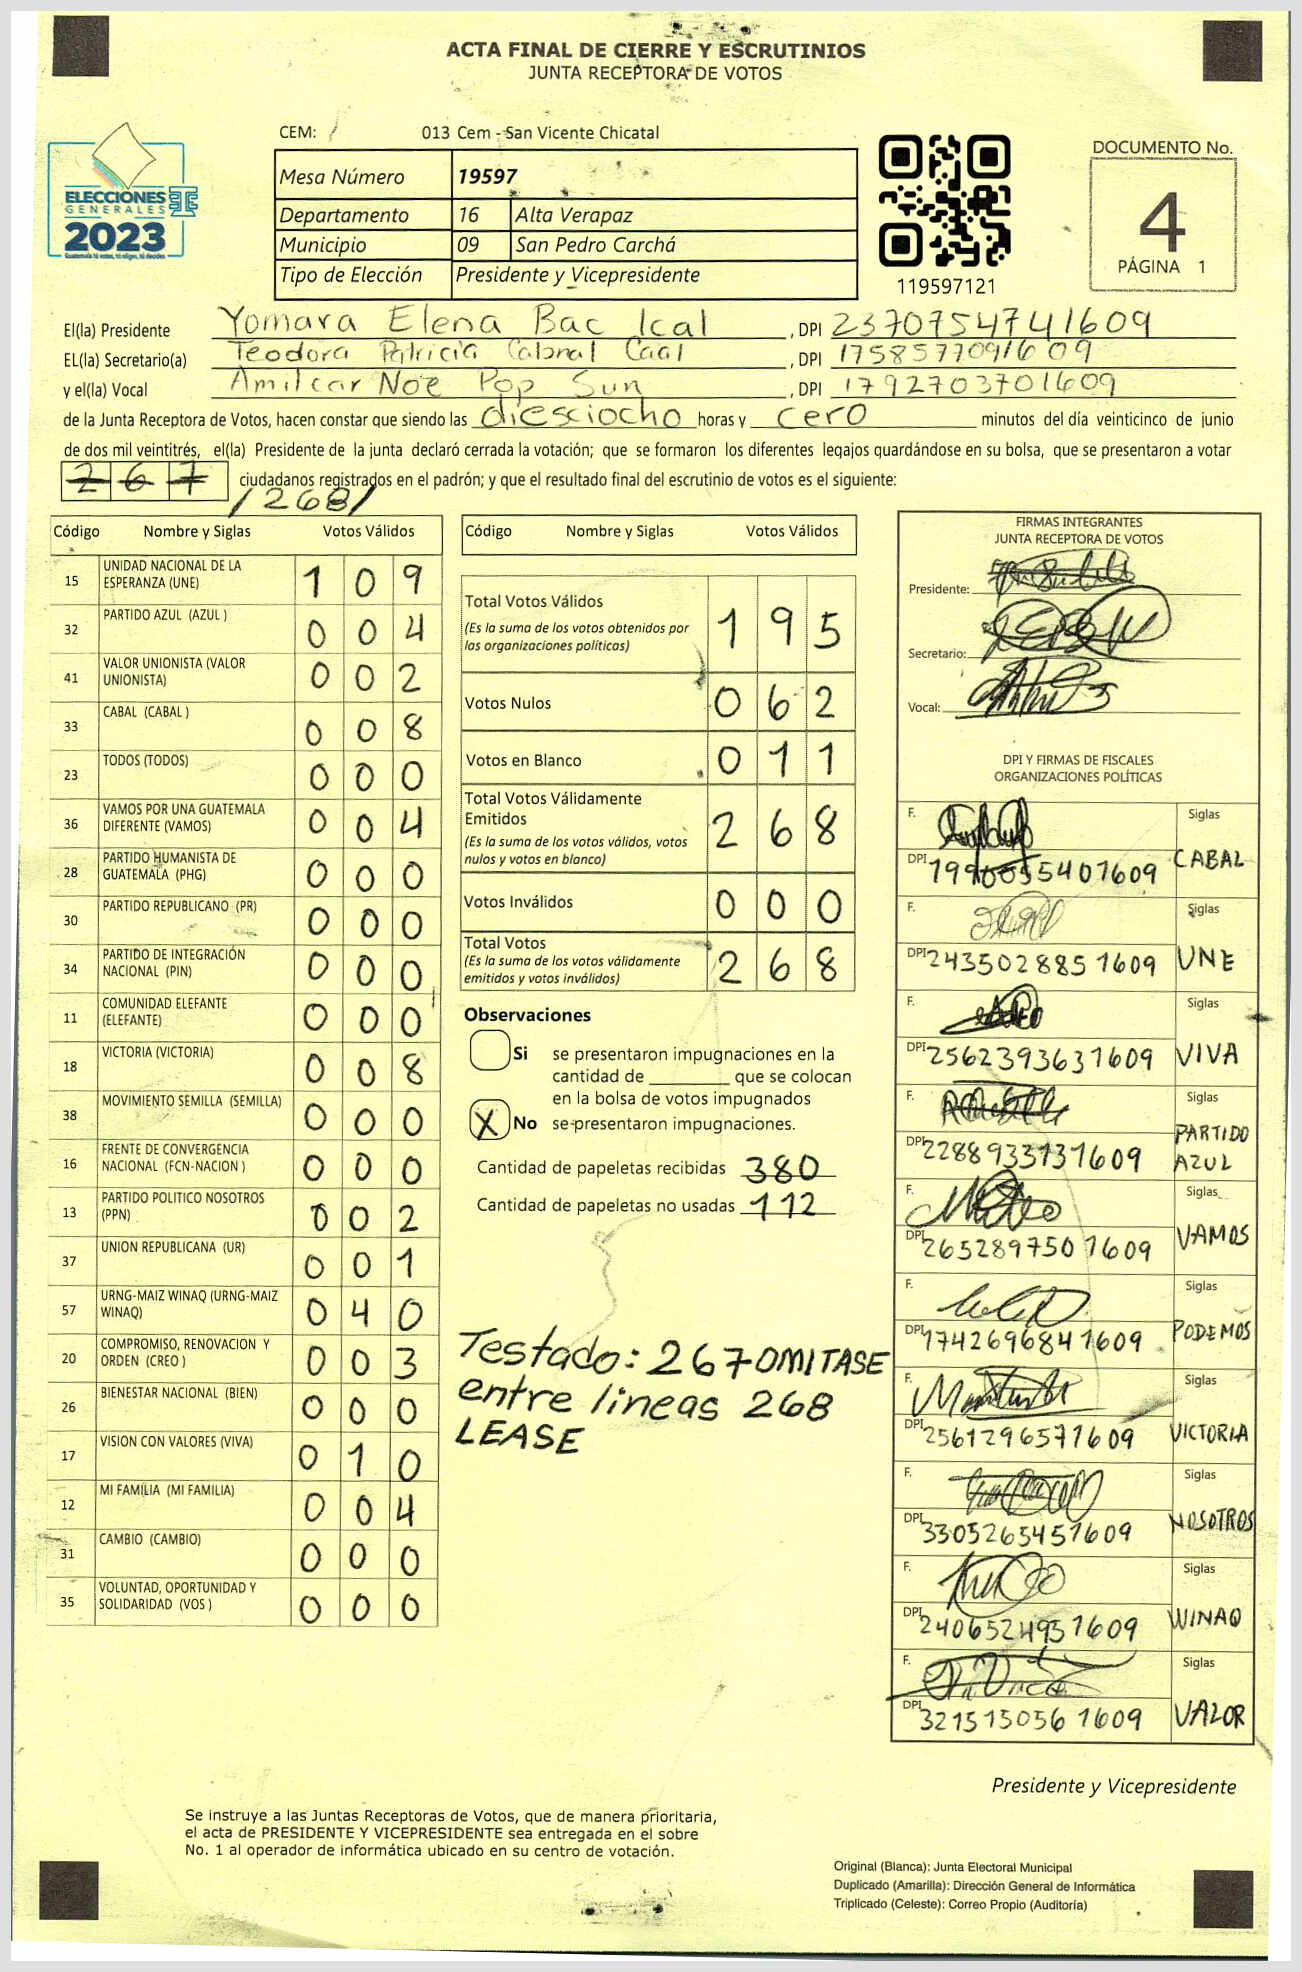 ACTA FINAL DE CIERRE Y ESCRUTINIOS
JUNTA RECEPTORA DE VOTOS
CEM: 013 Cem - San Vicente Chicatal
ELECCIONES
GENERALES
2023
Mesa Número 19597
Departamento 16 Alta Verapaz
Municipio 09 San Pedro Carchá
Tipo de Elección Presidente y Vicepresidente
119597121
DOCUMENTO No.
4
PÁGINA 1
El(la) Presidente Yomara Elena Bac Ical , DPI 2370754741609
EL(la) Secretario(a) Teodora Patricia Cabnal Caal , DPI 1758577091609
y el(la) Vocal Amilcar Noe Pop Sun , DPI 1792703701609
de la Junta Receptora de Votos, hacen constar que siendo las diesciocho horas y cero minutos del día veinticinco de junio
de dos mil veintitrés, el(la) Presidente de la junta declaró cerrada la votación; que se formaron los diferentes legajos guardándose en su bolsa, que se presentaron a votar
267 ciudadanos registrados en el padrón; y que el resultado final del escrutinio de votos es el siguiente:
/268/
Código Nombre y Siglas Votos Válidos
15 UNIDAD NACIONAL DE LA ESPERANZA (UNE) 1 0 9
32 PARTIDO AZUL (AZUL ) 0 0 4
41 VALOR UNIONISTA (VALOR UNIONISTA) 0 0 2
33 CABAL (CABAL ) 0 0 8
23 TODOS (TODOS) 0 0 0
36 VAMOS POR UNA GUATEMALA DIFERENTE (VAMOS) 0 0 4
28 PARTIDO HUMANISTA DE GUATEMALA (PHG) 0 0 0
30 PARTIDO REPUBLICANO (PR) 0 0 0
34 PARTIDO DE INTEGRACIÓN NACIONAL (PIN) 0 0 0
11 COMUNIDAD ELEFANTE (ELEFANTE) 0 0 0
18 VICTORIA (VICTORIA) 0 0 8
38 MOVIMIENTO SEMILLA (SEMILLA) 0 0 0
16 FRENTE DE CONVERGENCIA NACIONAL (FCN-NACION ) 0 0 0
13 PARTIDO POLITICO NOSOTROS (PPN) 0 0 2
37 UNION REPUBLICANA (UR) 0 0 1
57 URNG-MAIZ WINAQ (URNG-MAIZ WINAQ) 0 4 0
20 COMPROMISO, RENOVACION Y ORDEN (CREO ) 0 0 3
26 BIENESTAR NACIONAL (BIEN) 0 0 0
17 VISION CON VALORES (VIVA) 0 1 0
12 MI FAMILIA (MI FAMILIA) 0 0 4
31 CAMBIO (CAMBIO) 0 0 0
35 VOLUNTAD, OPORTUNIDAD Y SOLIDARIDAD (VOS ) 0 0 0
Código Nombre y Siglas Votos Válidos
Total Votos Válidos 1 9 5
(Es la suma de los votos obtenidos por
las organizaciones politicas)
Votos Nulos 0 6 2
Votos en Blanco 0 1 1
Total Votos Válidamente
Emitidos 2 6 8
(Es la suma de los votos válidos, votos
nulos y votos en blanco)
Votos Inválidos 0 0 0
Total Votos 2 6 8
(Es la suma de los votos válidamente
emitidos y votos inválidos)
Observaciones
Si se presentaron impugnaciones en la
cantidad de ________ que se colocan
en la bolsa de votos impugnados
X No se presentaron impugnaciones.
Cantidad de papeletas recibidas 380
Cantidad de papeletas no usadas 112
Testado: 267 OMITASE
entre lineas 268
LEASE
FIRMAS INTEGRANTES
JUNTA RECEPTORA DE VOTOS
Presidente:
Secretario:
Vocal:
DPI Y FIRMAS DE FISCALES
ORGANIZACIONES POLÍTICAS
F. Siglas
DPI CABAL
F. Siglas
DPI 2435028851609 UNE
F. Siglas
DPI 2562393631609 VIVA
F. Siglas
DPI 2288933131609 PARTIDO AZUL
F. Siglas
DPI 2652897501609 VAMOS
F. Siglas
DPI 1742696841609 PODEMOS
F. Siglas
DPI 2561296571609 VICTORIA
F. Siglas
DPI 3305265451609 NOSOTROS
F. Siglas
DPI 2406524951609 WINAQ
F. Siglas
DPI 3215150561609 VALOR
Presidente y Vicepresidente
Se instruye a las Juntas Receptoras de Votos, que de manera prioritaria,
el acta de PRESIDENTE Y VICEPRESIDENTE sea entregada en el sobre
No. 1 al operador de informática ubicado en su centro de votación.
Original (Blanca): Junta Electoral Municipal
Duplicado (Amarilla): Dirección General de Informática
Triplicado (Celeste): Correo Propio (Auditoría)